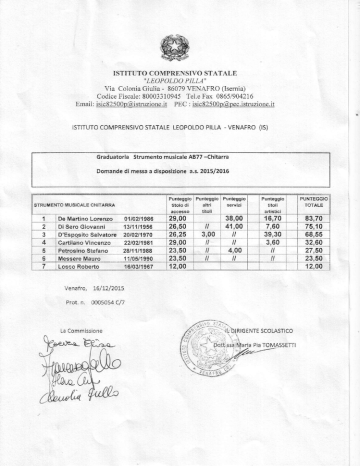 ISTITUTO COMPRENSIVO STATALE
"LEOPOLDO PILLA"
Via Colonia Giulia - 86079 VENAFRO (Isernia)
Codice Fiscale: 80003310945 Tel.e Fax 0865/904216
Email: isic82500p@istruzione.it PEC : isic82500p@pec.istruzione.it
ISTITUTO COMPRENSIVO STATALE LEOPOLDO PILLA - VENAFRO (IS)
Graduatoria Strumento musicale AB77 –Chitarra
Domande di messa a disposizione a.s. 2015/2016
STRUMENTO MUSICALE CHITARRA Punteggio titolo di accesso Punteggio altri titoli Punteggio servizi Punteggio titoli artistici PUNTEGGIO TOTALE
1 De Martino Lorenzo 01/02/1986 29,00 38,00 16,70 83,70
2 Di Sero Giovanni 13/11/1956 26,50 // 41,00 7,60 75,10
3 D'Esposito Salvatore 20/02/1970 26,25 3,00 // 39,30 68,55
4 Cartilano Vincenzo 22/02/1981 29,00 // // 3,60 32,60
5 Petrosino Stefano 28/11/1988 23,50 // 4,00 // 27,50
6 Messere Mauro 11/05/1990 23,50 // // // 23,50
7 Losco Roberto 16/03/1967 12,00 12,00
Venafro, 16/12/2015
Prot. n. 0005054 C/7
La Commissione
IL DIRIGENTE SCOLASTICO
Dott.ssa Maria Pia TOMASSETTI